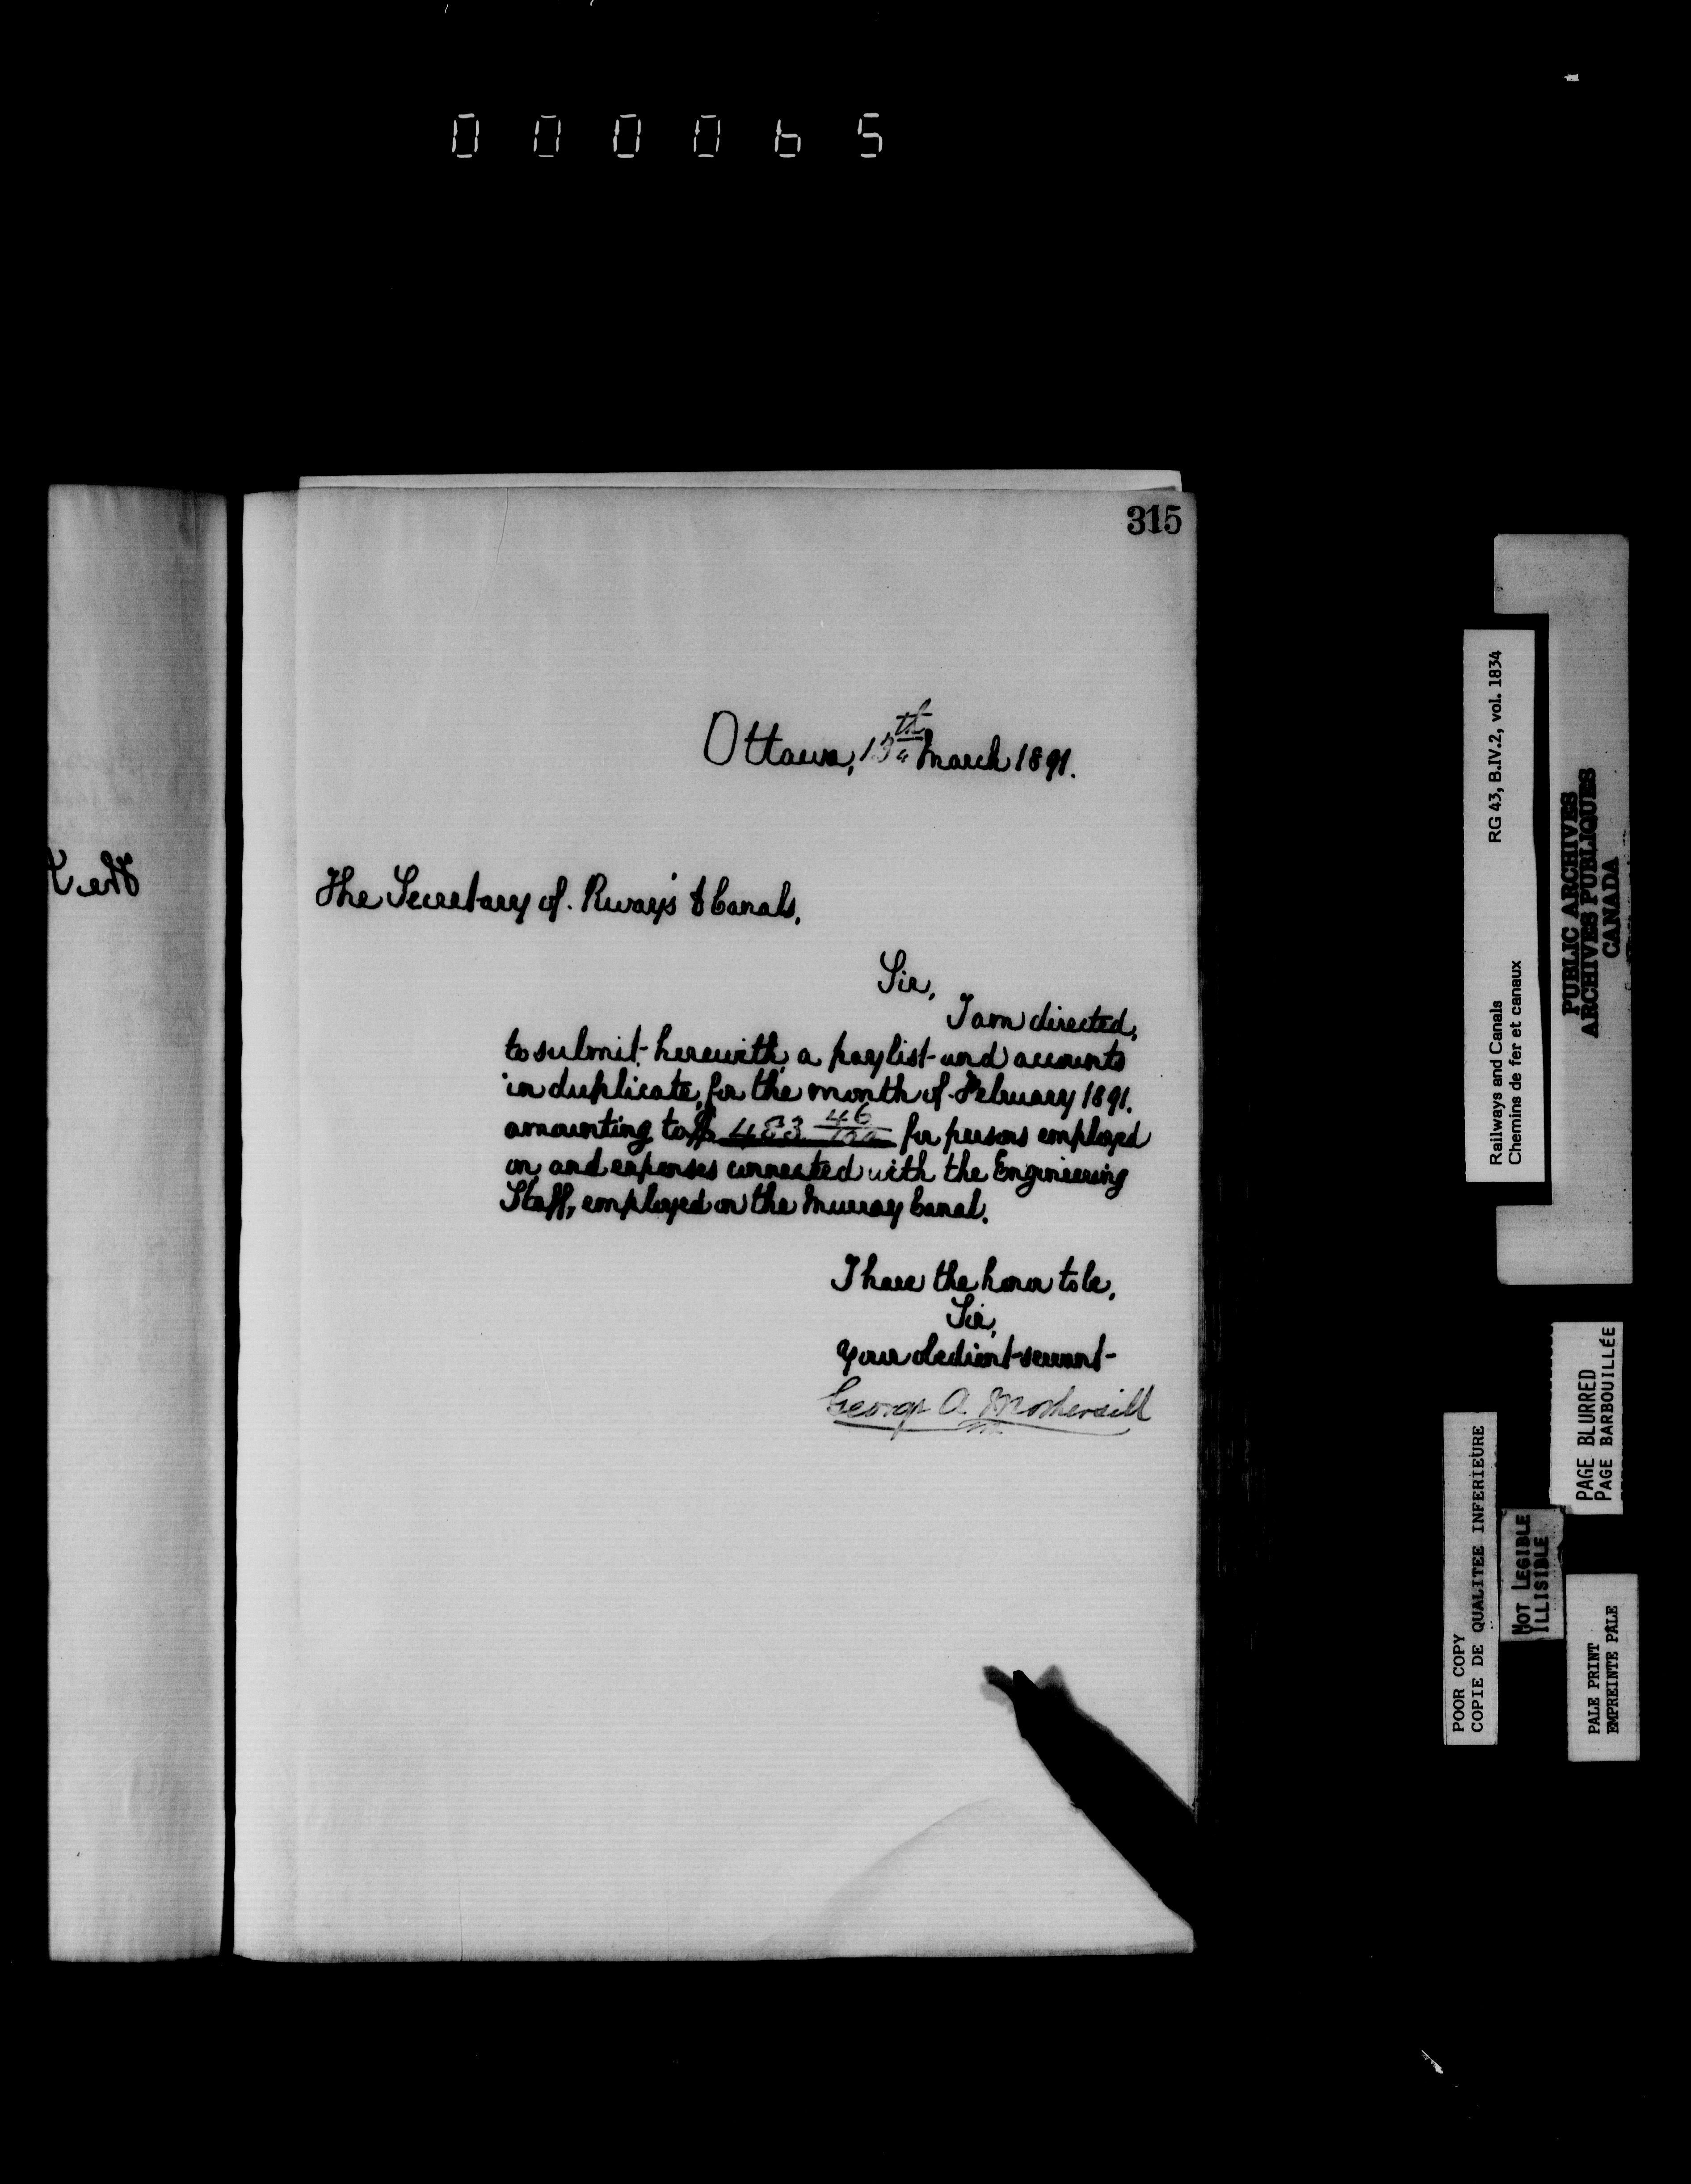 000065
315
Ottawa, 13th March 1891.
The Secretary of Rways & Canals,
Sir,
I am directed,
to submit herewith, a paylist and accounts
in duplicate, for the month of February 1891.
amounting to $ 483 46/100 for persons employed
on, and expenses connected with the Engineering
Staff, employed on the Murray Canal.
I have the honor to be,
Sir,
Your obedient servant
George A. Mothersill
Railways and Canals RG 43, B.IV.2, vol. 1834
Chemins de fer et canaux
PUBLIC ARCHIVES
ARCHIVES PUBLIQUES
CANADA
PAGE BLURRED
PAGE BARBOUILLÉE
POOR COPY
COPIE DE QUALITEE INFERIEURE
NOT LEGIBLE
ILLISIBLE
PALE PRINT
EMPREINTE PÂLE